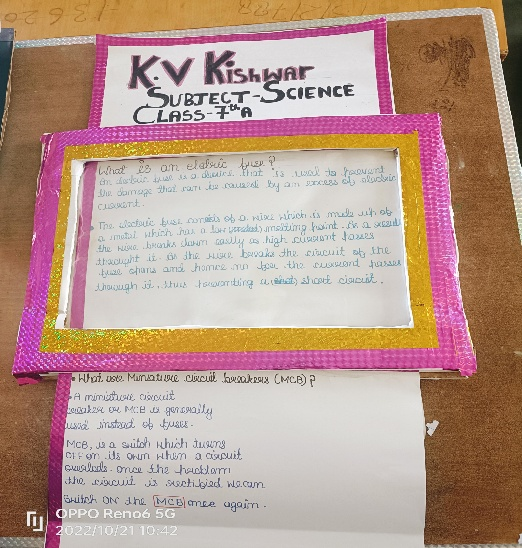 K.V Kishwar
SUBJECT-SCIENCE
CLASS-7th A
What is an eletric fuse?
An eletric fuse is a device that is used to prevent
the damage that can be caused by an excess of electric
current.
The electric fuse consists of a wire which is made up of
a metal which has a low melting point. As a result
the wire breaks down easily as high current passes
thought it. As the wire breaks the circuit of the
fuse opens and hence no the current passes
through it. thus preventing a short circuit.
• What are Miniature circuit breakers (MCB)?
• A miniature circuit
breaker or MCB is generally
used instead of fuses.
MCB, is a switch which turns
OFF on its own when a circuit
overloads. once the problem
the circuit is rectified we can
switch ON the MCB once again.
OPPO Reno6 5G
2022/10/21 10:42